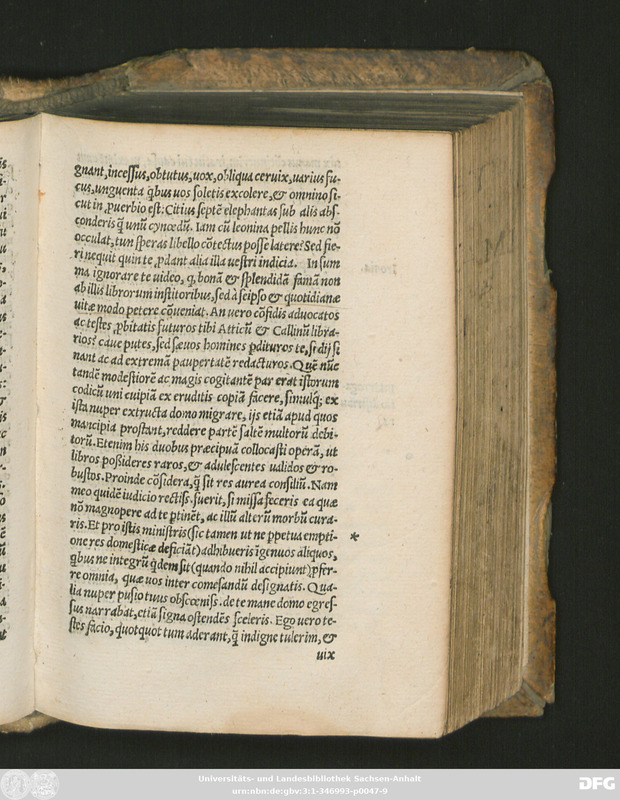 gnant, incessus, obtutus, uox, obliqua ceruix, uarius fu-
cus, unguenta q̃bus uos soletis excolere, & omnino si-
cut in ꝓuerbio est: Citius septẽ elephantas sub alis abs-
conderis q̃ unũ cynœdũ. Iam cũ leonina pellis hunc nõ
occulat, tun speras libello cõtectus posse latere? Sed fie-
ri nequit quin te ꝓdant alia illa uestri indicia. In sum
ma ignorare te uideo, q, bonã & splendidã famã non
ab illis librorum institoribus, sed à seipso & quotidianæ
uitæ modo petere cõueniat. An uero cõfidis aduocatos
ac testes ꝓbitatis futuros tibi Atticũ & Callinũ libra-
rios? caue putes, sed sæuos homines ꝑdituros te, si dij si
nant ac ad extremã paupertatẽ redacturos. Quẽ nũc
tandẽ modestiorẽ ac magis cogitantẽ par erat istorum
codicũ uni cuipiã ex eruditis copiã facere, simulq; ex
ista nuper extructa domo migrare, ijs etiã apud quos
mancipia prostant, reddere partẽ saltẽ multorũ debi-
torũ. Etenim his duobus præcipuã collocasti operã, ut
libros poßideres raros, & adulescentes ualidos & ro-
bustos. Proinde cõsidera, q̃ sit res aurea consiliũ. Nam
meo quidẽ iudicio rectiss. fuerit, si missa feceris ea quæ
nõ magnopere ad te ꝑtinẽt, ac illũ alterũ morbũ cura-
ris. Et pro istis ministris (sic tamen ut ne ꝑpetua empti- *
one res domesticæ deficiãt) adhibueris ĩgenuos aliquos,
q̃bus ne integrũ q̃dem sit (quando nihil accipiunt) ꝓfer-
re omnia, quæ uos inter comesandũ designatis. Qua-
lia nuper pusio tuus obscœniss. de te mane domo egres-
sus narrabat, etiã signa ostendẽs sceleris. Ego uero te-
stes facio, quotquot tum aderant, q̃ indigne tulerim, &
uix
Universitäts- und Landesbibliothek Sachsen-Anhalt
urn:nbn:de:gbv:3:1-346993-p0047-9
DFG